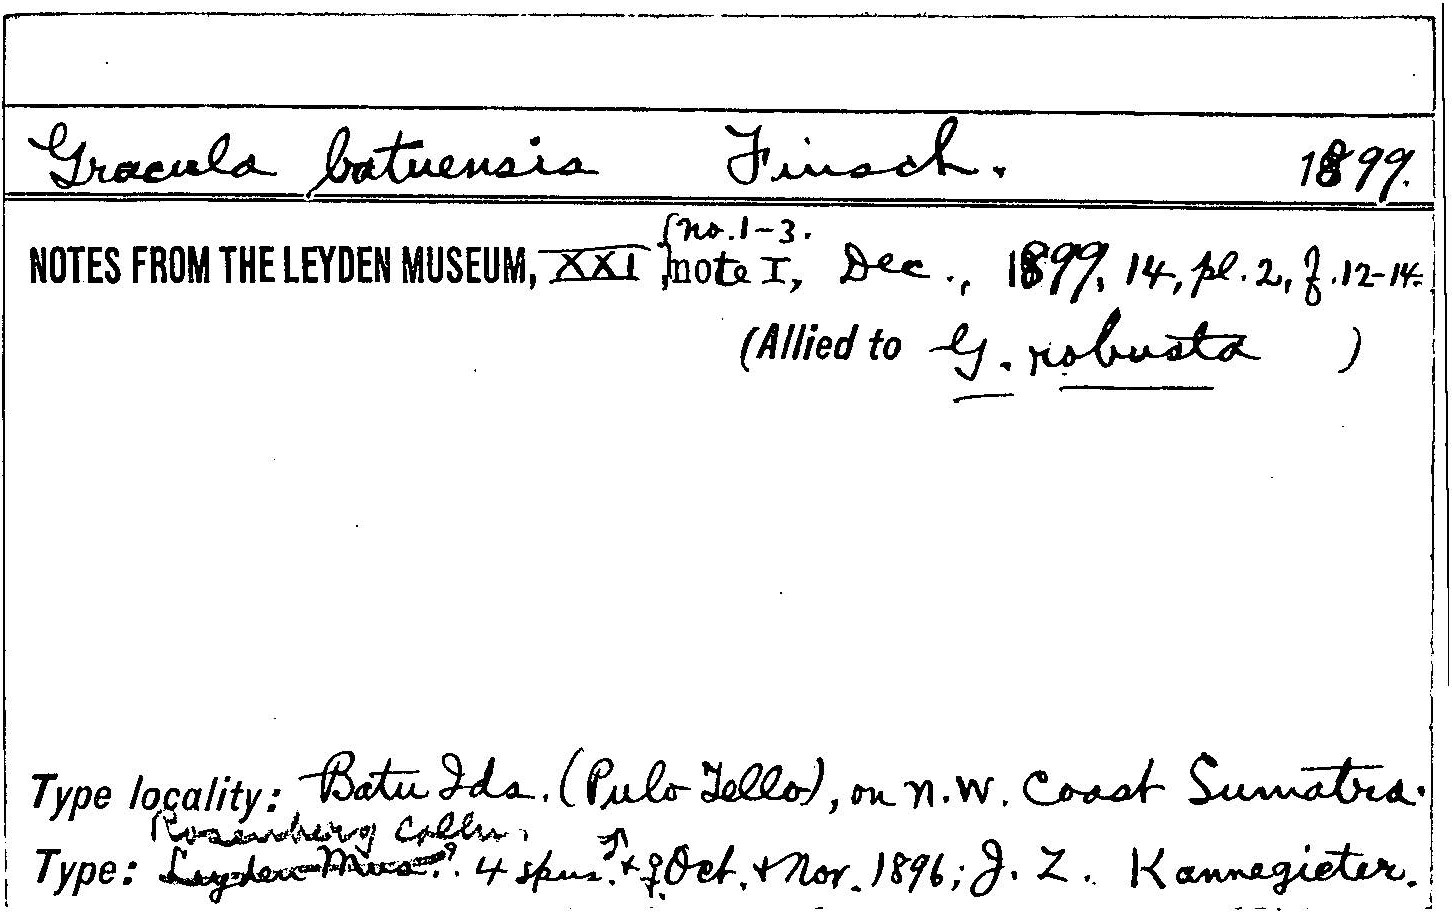 Gracula batuensis Finsch. 1899.
{no. 1-3.
NOTES FROM THE LEYDEN MUSEUM, XXI note I, Dec., 1899, 14, pl. 2, f. 12-14.
(Allied to G. robusta )
Type locality: Batu Ids. (Pulo Tello), on N.W. Coast Sumatra.
Rosenberg Colln.
Type: Leyden Mus?. 4 spms. ♂ + ♀ Oct. + Nov. 1896; J. Z. Kannegieter.